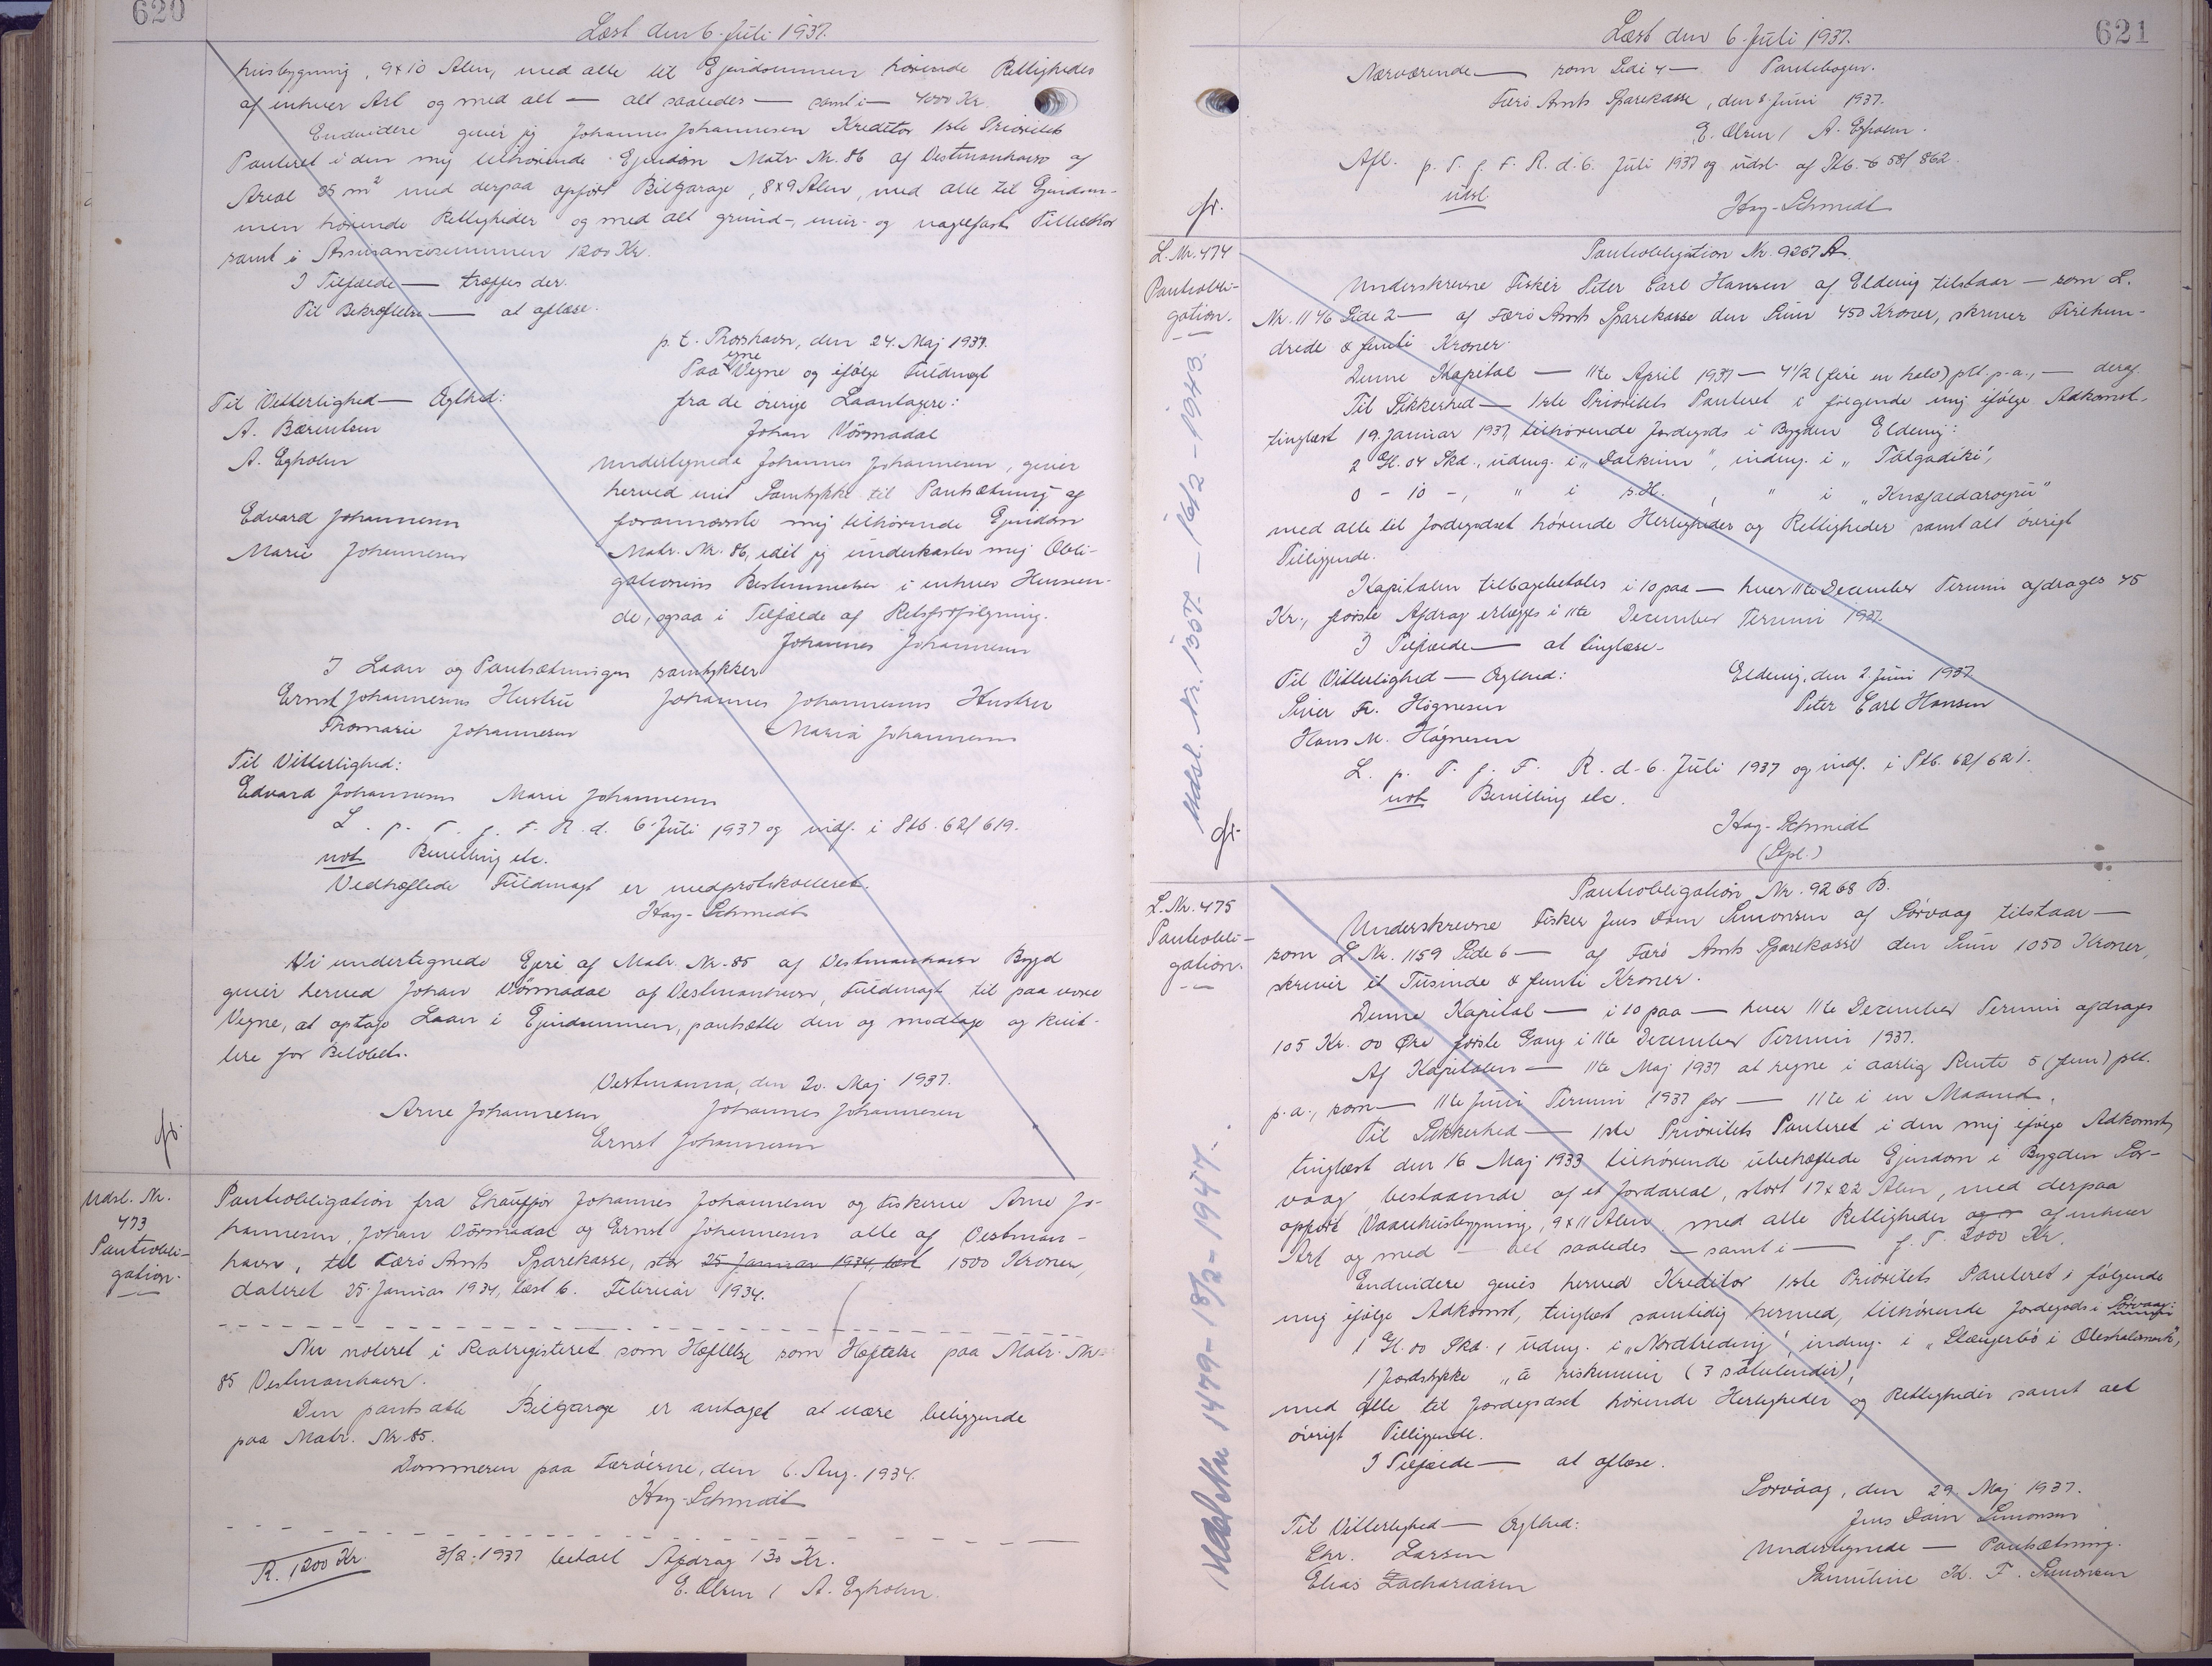 620
Læst den 6. Juli 1937.
husbygning, 9x10 Alen, med alle til Ejendommen hørende Rettigheder
af enhver Art og med alt — alt saaledes — samt i — 4000 Kr.
Endvidere giver jeg Johannes Johannesen Kreditor 1ste Prioritets
Panteret i den mig tilhørende Ejendom Matr. Nr. 86 af Vestmanhavn af
Areal 35 m² med derpaa opført Bilgarage, 8x9 Alen, med alle til Ejendom-
men hørende Rettigheder og med alt grund-, mur- og naglefast Tilbehør
samt i Assurancesummen 1200 Kr.
I Tilfælde — træffes der.
Til Bekræftelse — at aflæse.
p. t. Thorshavn, den 24. Maj 1937.
Paa egne Vegne og ifølge Fuldmagt
Til Vitterlighed — Ægthed:
fra de øvrige Laantagere:
A. Bærentsen
Johan Vörmadal
A. Egholm
Undertegnede Johannes Johannesen, giver
herved mit Samtykke til Pantsætning af
Edvard Johannesen
forannævnte mig tilhørende Ejendom
Marie Johannesen
Matr. Nr. 86, idet jeg underkaster mig Obli-
gationens Bestemmelser i enhver Henseen-
de, ogsaa i Tilfælde af Retsforfølgning.
Johannes Johannesen
I Laan og Pantsætningen samtykker
Ernst Johannesens Hustru
Johannes Johannesens Hustru
Thomasie Johannesen
Maria Johannesen
Til Vitterlighed:
Edvard Johannesen Marie Johannesen
L. p. T. f. F. R. d. 6. Juli 1937 og indf. i Ptb. 62/619.
not Bevilling etc.
Vedhæftede Fuldmagt er medprotokolleret.
Hay-Schmidt
Vi undertegnede Ejere af Matr. Nr. 85 af Vestmanhavn Bygd
giver herved Johan Vörmadal af Vestmanhavn, Fuldmagt til paa vore
Vegne, at optage Laan i Ejendommen, pantsætte den og modtage og kvit-
tere for Beløbet.
Vestmanna, den 20. Maj 1937.
Arne Johannesen Johannes Johannesen
Ernst Johannesen
Udsl. Nr.
473
Pantobli-
gation.
Pantobligation fra Chauffør Johannes Johannesen og Fiskerne Arne Jo-
hannesen, Johan Vörmadal og Ernst Johannesen alle af Vestman-
havn, til Færø Amts Sparekasse, stor 25 Januar 1934, læst 1500 Kroner,
dateret 25. Januar 1934, læst 6. Februar 1934.
Nu noteret i Realregisteret som Hæftelse som Hæftelse paa Matr. Nr.
85 Vestmanhavn.
Den pantsatte Bilgarage er antaget at være beliggende
paa Matr. Nr. 85.
Dommeren paa Færøerne, den 6. Aug. 1934.
Hay-Schmidt
R. 1200 Kr.
3/2. 1937 betalt Afdrag 130 Kr.
E. Olsen / A. Egholm.
621
Læst den 6. Juli 1937.
Nærværende — som Side 4 — Pantebogen.
Færø Amts Sparekasse, den 8. Juni 1937.
E. Olsen / A. Egholm.
Afl. p. T. f. F. R. d. 6. Juli 1937 og udsl. af Ptb. 58/862.
udsl.
Hay-Schmidt
L. Nr. 474
Pantobli-
gation.
Udsl. Nr. 1307 - 16/2 - 1943.
Pantobligation Nr. 9267 A.
Underskrevne Fisker Peter Carl Hansen af Eldevig tilstaar — som L.
Nr. 1146 Side 2 — af Færø Amts Sparekasse den Sum 450 Kroner, skriver Firehun-
drede & femti Kroner.
Denne Kapital — 11te April 1937 — 4 1/2 (fire en halv) pCt. p. a., — deraf.
Til Sikkerhed — 1ste Prioritets Panteret i følgende mig ifølge Adkomst,
tinglæst 19. Januar 1937, tilhørende Jordegods i Bygden Eldevig:
2 Gl. 04 Skd., udmg. i "Dalkinn", indmg. i "Tülgadiki",
0 - 10 -, " i s. H., " i "Knæfaldaroyru"
med alle til Jordegodset hørende Herligheder og Rettigheder samt alt øvrigt
Tilliggende.
Kapitalen tilbagebetales i 10 paa — hver 11te December Termin afdrages 45
Kr., første Afdrag erlægges i 11te December Termin 1937.
I Tilfælde — at tinglæse.
Til Vitterlighed — Ægthed:
Eldevig, den 2. Juni 1937
Siver Fr. Høgnesen
Peter Carl Hansen
Hans M. Høgnesen
L. p. T. f. F. R. d. 6. Juli 1937 og indf. i Ptb. 62/621.
not Bevilling etc.
Hay-Schmidt
(Stpl.)
L. Nr. 475
Pantobli-
gation.
Udsl. Nr. 1479 - 18/2 - 1947.
Pantobligation Nr. 9268 B.
Underskrevne Fisker Jens Dam Simonsen af Sörvaag tilstaar —
som L. Nr. 1159 Side 6 — af Færø Amts Sparekasse den Sum 1050 Kroner,
skriver et Tusinde & femti Kroner.
Denne Kapital — i 10 paa — hver 11te December Termin afdrages
105 Kr. 00 Øre første Gang i 11te December Termin 1937.
Af Kapitalen — 11te Maj 1937 at regne i aarlig Rente 5 (fem) pCt.
p. a., som — 11te Juni Termin 1937 for — 11te i en Maaned.
Til Sikkerhed — 1ste Prioritets Panteret i den mig ifølge Adkomst,
tinglæst den 16 Maj 1933 tilhørende ubehæftede Ejendom i Bygden Sör-
vaag, bestaaende af et Jordareal, stort 17x22 Alen, med derpaa
opført Vaanehusbygning, 9x11 Alen, med alle Rettigheder og af enhver
Art og med — alt saaledes — samt i — f. T. 2000 Kr.
Endvidere gives herved Kreditor 1ste Prioritets Panteret i følgende
mig ifølge Adkomst, tinglæst samtidig hermed, tilhørende Jordegods i Sörvaag:
1 Gl. 00 Skd., udmg. i "Nordtreding", indmg. i
1 Jordstykke
med alle til Jordegodset hørende Herligheder og Rettigheder samt alt
øvrigt Tilliggende.
I Tilfælde — at aflæse.
Sørvaag, den 29. Maj 1937.
Til Vitterlighed — Ægthed:
Jens Dam Simonsen
Chr. Larsen
Undertegnede — Pantsætning.
Elias Zachariasen
K. F. Simonsen